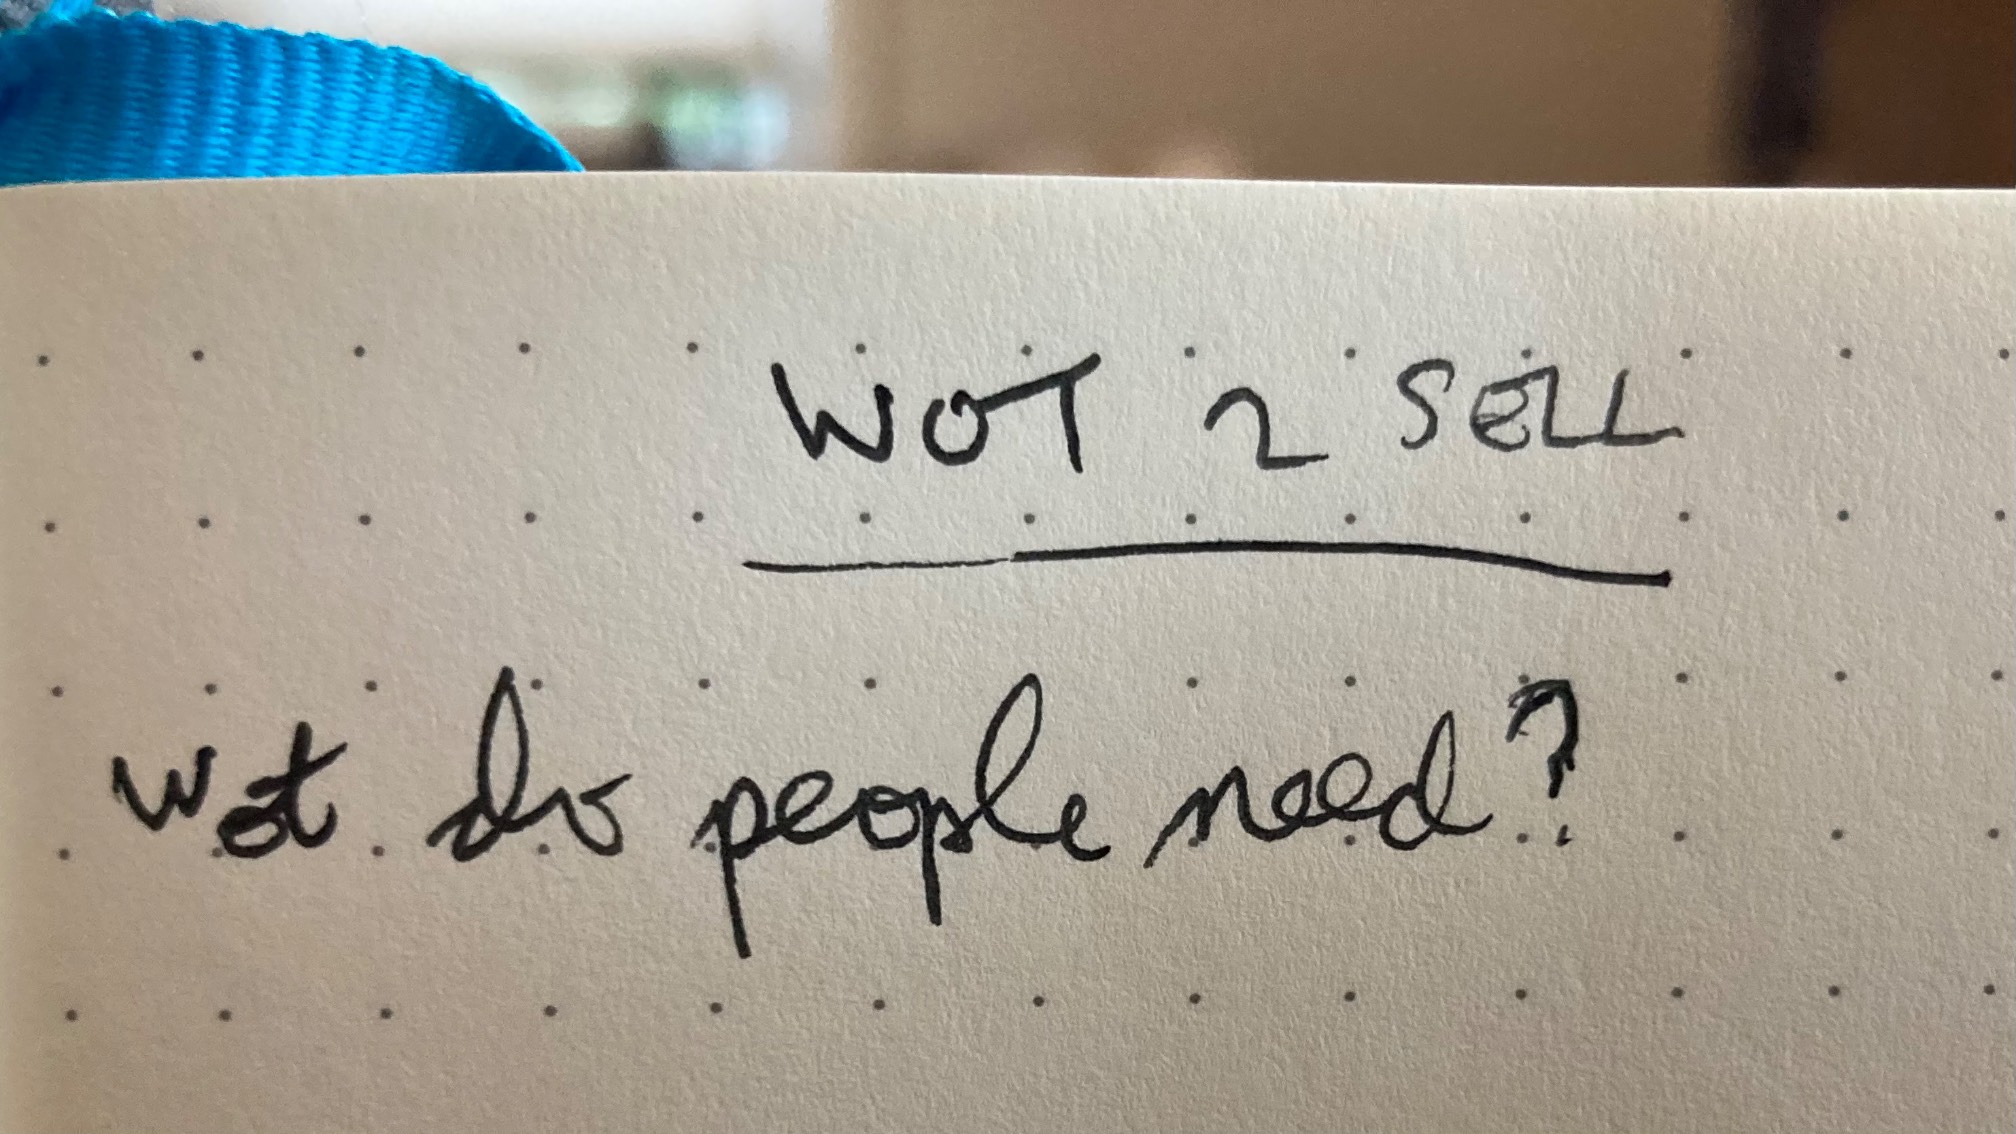 WOT 2 SELL
wot do people need?